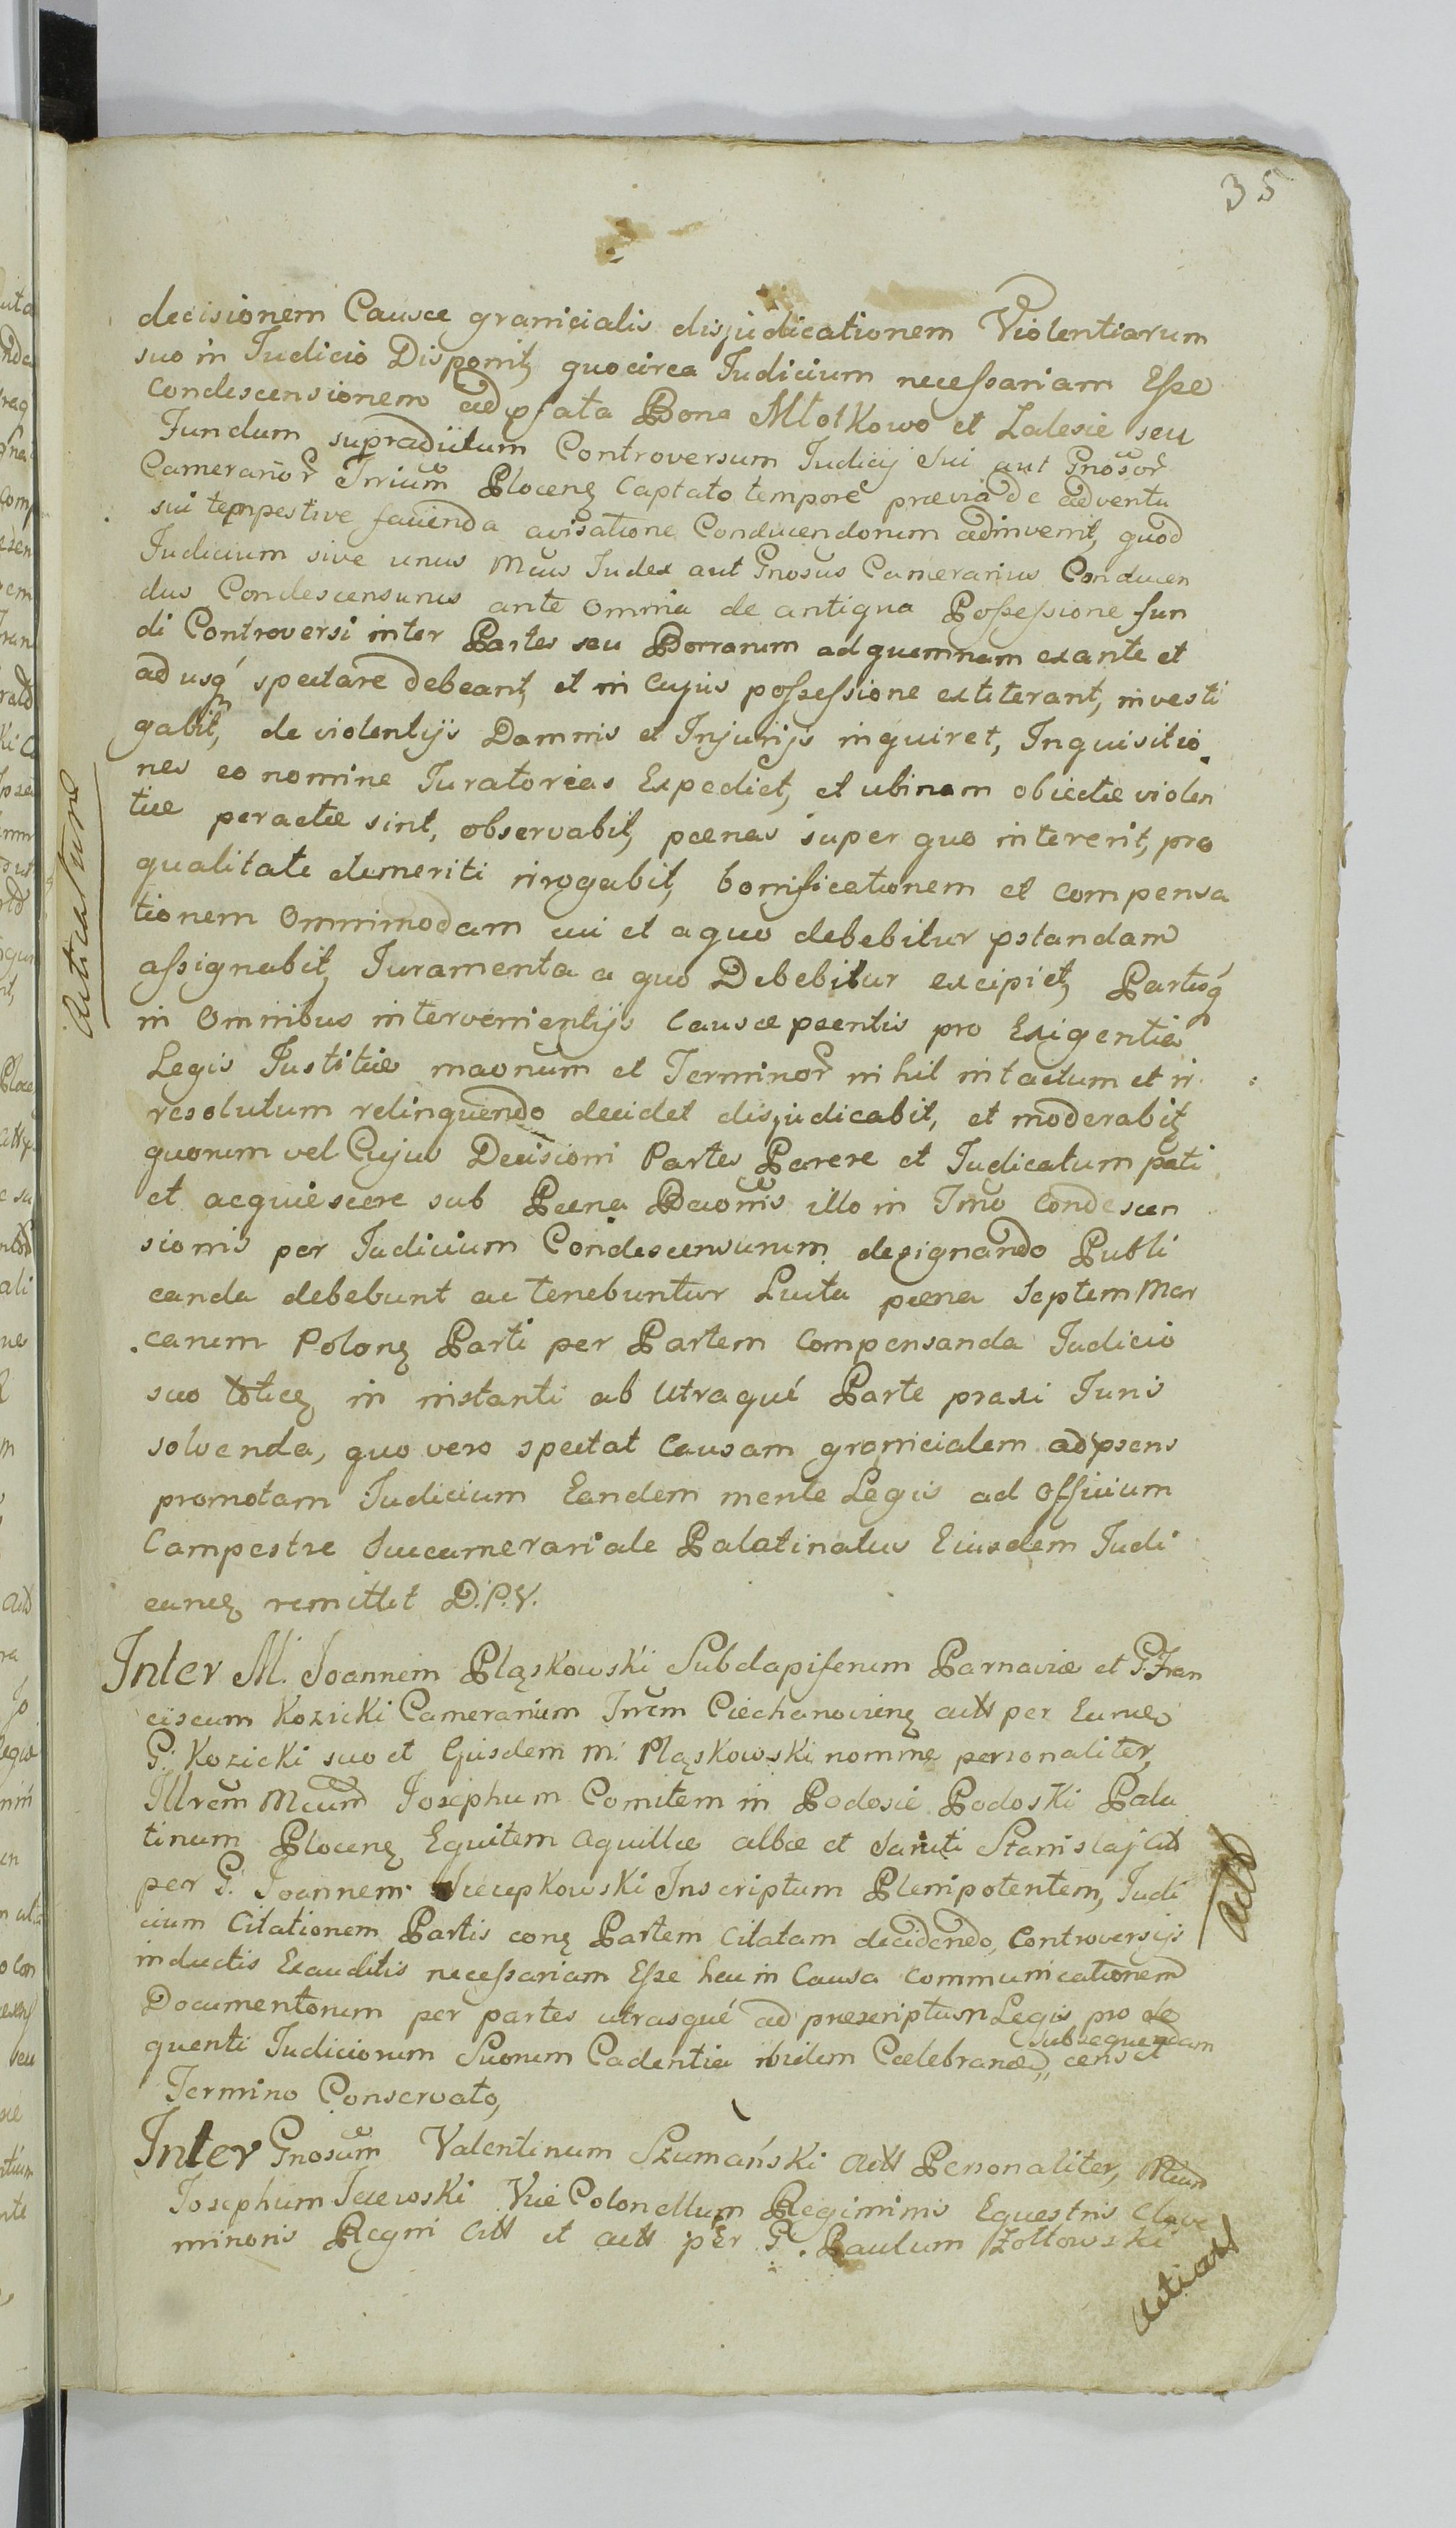 35
decisionem Causæ granicialis disjudicationem Violentiarum
suo in Judicio Disponit, quocirca Judicium necessariam Esse
Condescensionem ad pfata Bona Młotkowo et Zalesie seu
Fundum supradictum Controversum Judicij Sui aut Gnosor
Cameranor Trrium Plocens Captato tempore prævia de adventu
sui tempestive facienda avisatione Conducendorum adinvenit, quod
Judicium sive unus Mcus Judex aut Gnosus Camerarius Conducen
dus Condescensurus ante omnia de antiqua Possessione fun
di Controversi inter Partes seu Bonarum ad quemnam exante et
ad usq spectare debeant, et in Cujus possessione extiterant, investi
gabit, de violentijs Damnis et Injurijs inquiret, Inquisitio
nes eo nomine Juratorias Expediet, et ubinam obiectæ violen
tiæ peractæ sint, observabit, pœnas super quo intererit, pro
qualitate demeriti irrogabit, bonificationem et compensa
tionem Omnimodam cui et a quo debebitur pstandam
assignabit, Juramenta a quo Debebitur excipiet, Partesq
in Omnibus intervenientijs Causæ pœntis pro Exigentia
Legis Justitiæ maonum et Terminor nihil intactum et ir
resolutum relinquendo decidet disjudicabit, et moderabit,
quorum vel Cujus Decisioni Partes Parere et Judicatum pati
et acquiescere sub Pœna Baonis illo in Tmo Condescen
sionis per Judicium Condescensurum designando Publi
canda debebunt ac tenebuntur Luita pœna Septem Mar
carum Polon Parti per Partem Compensanda Judicio
suo totiez in instanti ab Utraque Parte praxi Juris
solvenda, quo vero spectat Causam granicialem ad psens
promotam Judicium Eandem mente Legis ad Officium
Campestre Succamerariale Palatinatus Eiusdem Judi
canen remittit D.P.V.
Inter M. Joannem Pląskowski Subdapiferum Parnaviæ et G. Fran
ciscum Kozicki Camerarium Trrem Ciechanovien actt per Eunde
G. Kozicki suo et Ejusdem M. Pląskowski nomine personaliter,
Illrem Mcum Josephum Comitem in Podosie Podoski Pala
tinum Plocen Equitem Aquillæ albæ et Sancti Stanislaj Citt
per G. Joannem Inscriptum Plenipotentem, Judi
cium Citationem Partis conq Partem Citatam decidendo, Controversijs
inductis Exauditis necessariam Esse hac in Causa communicationem
Documentorum per partes utrasque ad præscriptum Legis pro se
quenti Judiciorum Suorum Cadentia ibidem Cœlebranda, subsequendam censet
Termino Conservato,
Inter Gnosum Valentinum Szumański Actt Personaliter, Mcum
Josephum Vice Colonellum Regiminis Equestris Clavæ
minoris Regni Citt et actt per G. Paulum Żółtowski